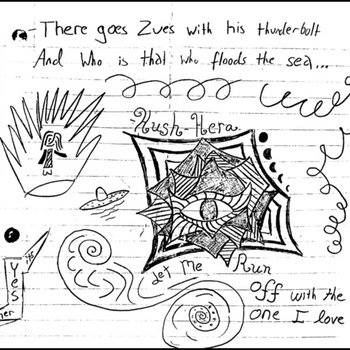 There goes Zues with his thunderbolt
And who is that who floods the sea...
Hush-Hera
Let me Run
Yes
off with the
one I love